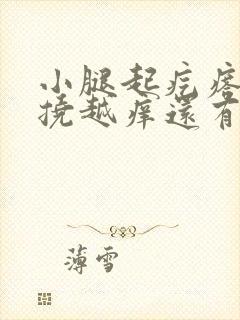 小腿起疙瘩
挠越痒还有
薄雪